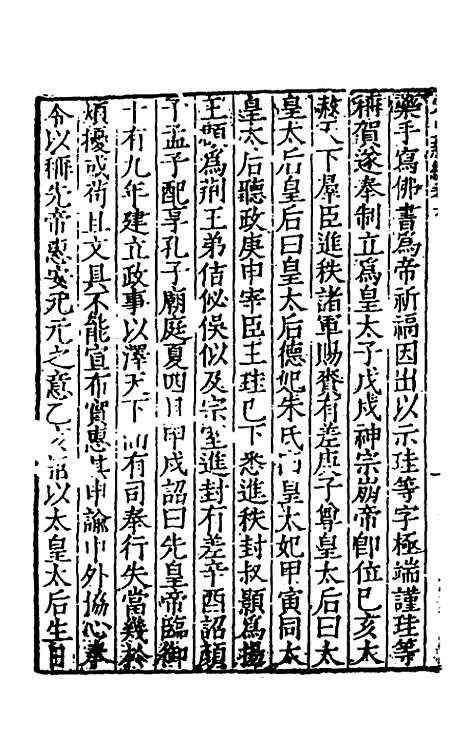 藥手寫佛書爲帝祈福因出以示珪等字極端謹珪等
稱賀遂奉制立爲皇太子戊戌神宗崩帝卽位巳亥大
赦天下羣臣進秩諸軍賜賚有差庚子尊皇太后曰太
皇太后皇后曰皇太后德妃朱氏曰皇太妃甲寅同太
皇太后聽政庚申宰臣王珪已下悉進秩封叔顥爲揚
王頵爲荆王弟佶佖俁似及宗室進封有差辛酉詔顏
子孟子配享孔子廟庭夏四月甲戌詔曰先皇帝臨御
十有九年建立政事以澤天下而有司奉行失當幾於
煩擾或苟且文具不能宣布實惠其申諭中外協心奉
令以稱先帝惠安元元之意乙亥詔以太皇太后生日